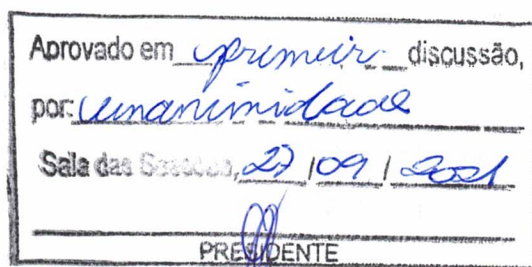 Aprovado em primeir discussão,
por: unanimidade
Sala das Sessões, 27 / 09 / 2021
PRESIDENTE